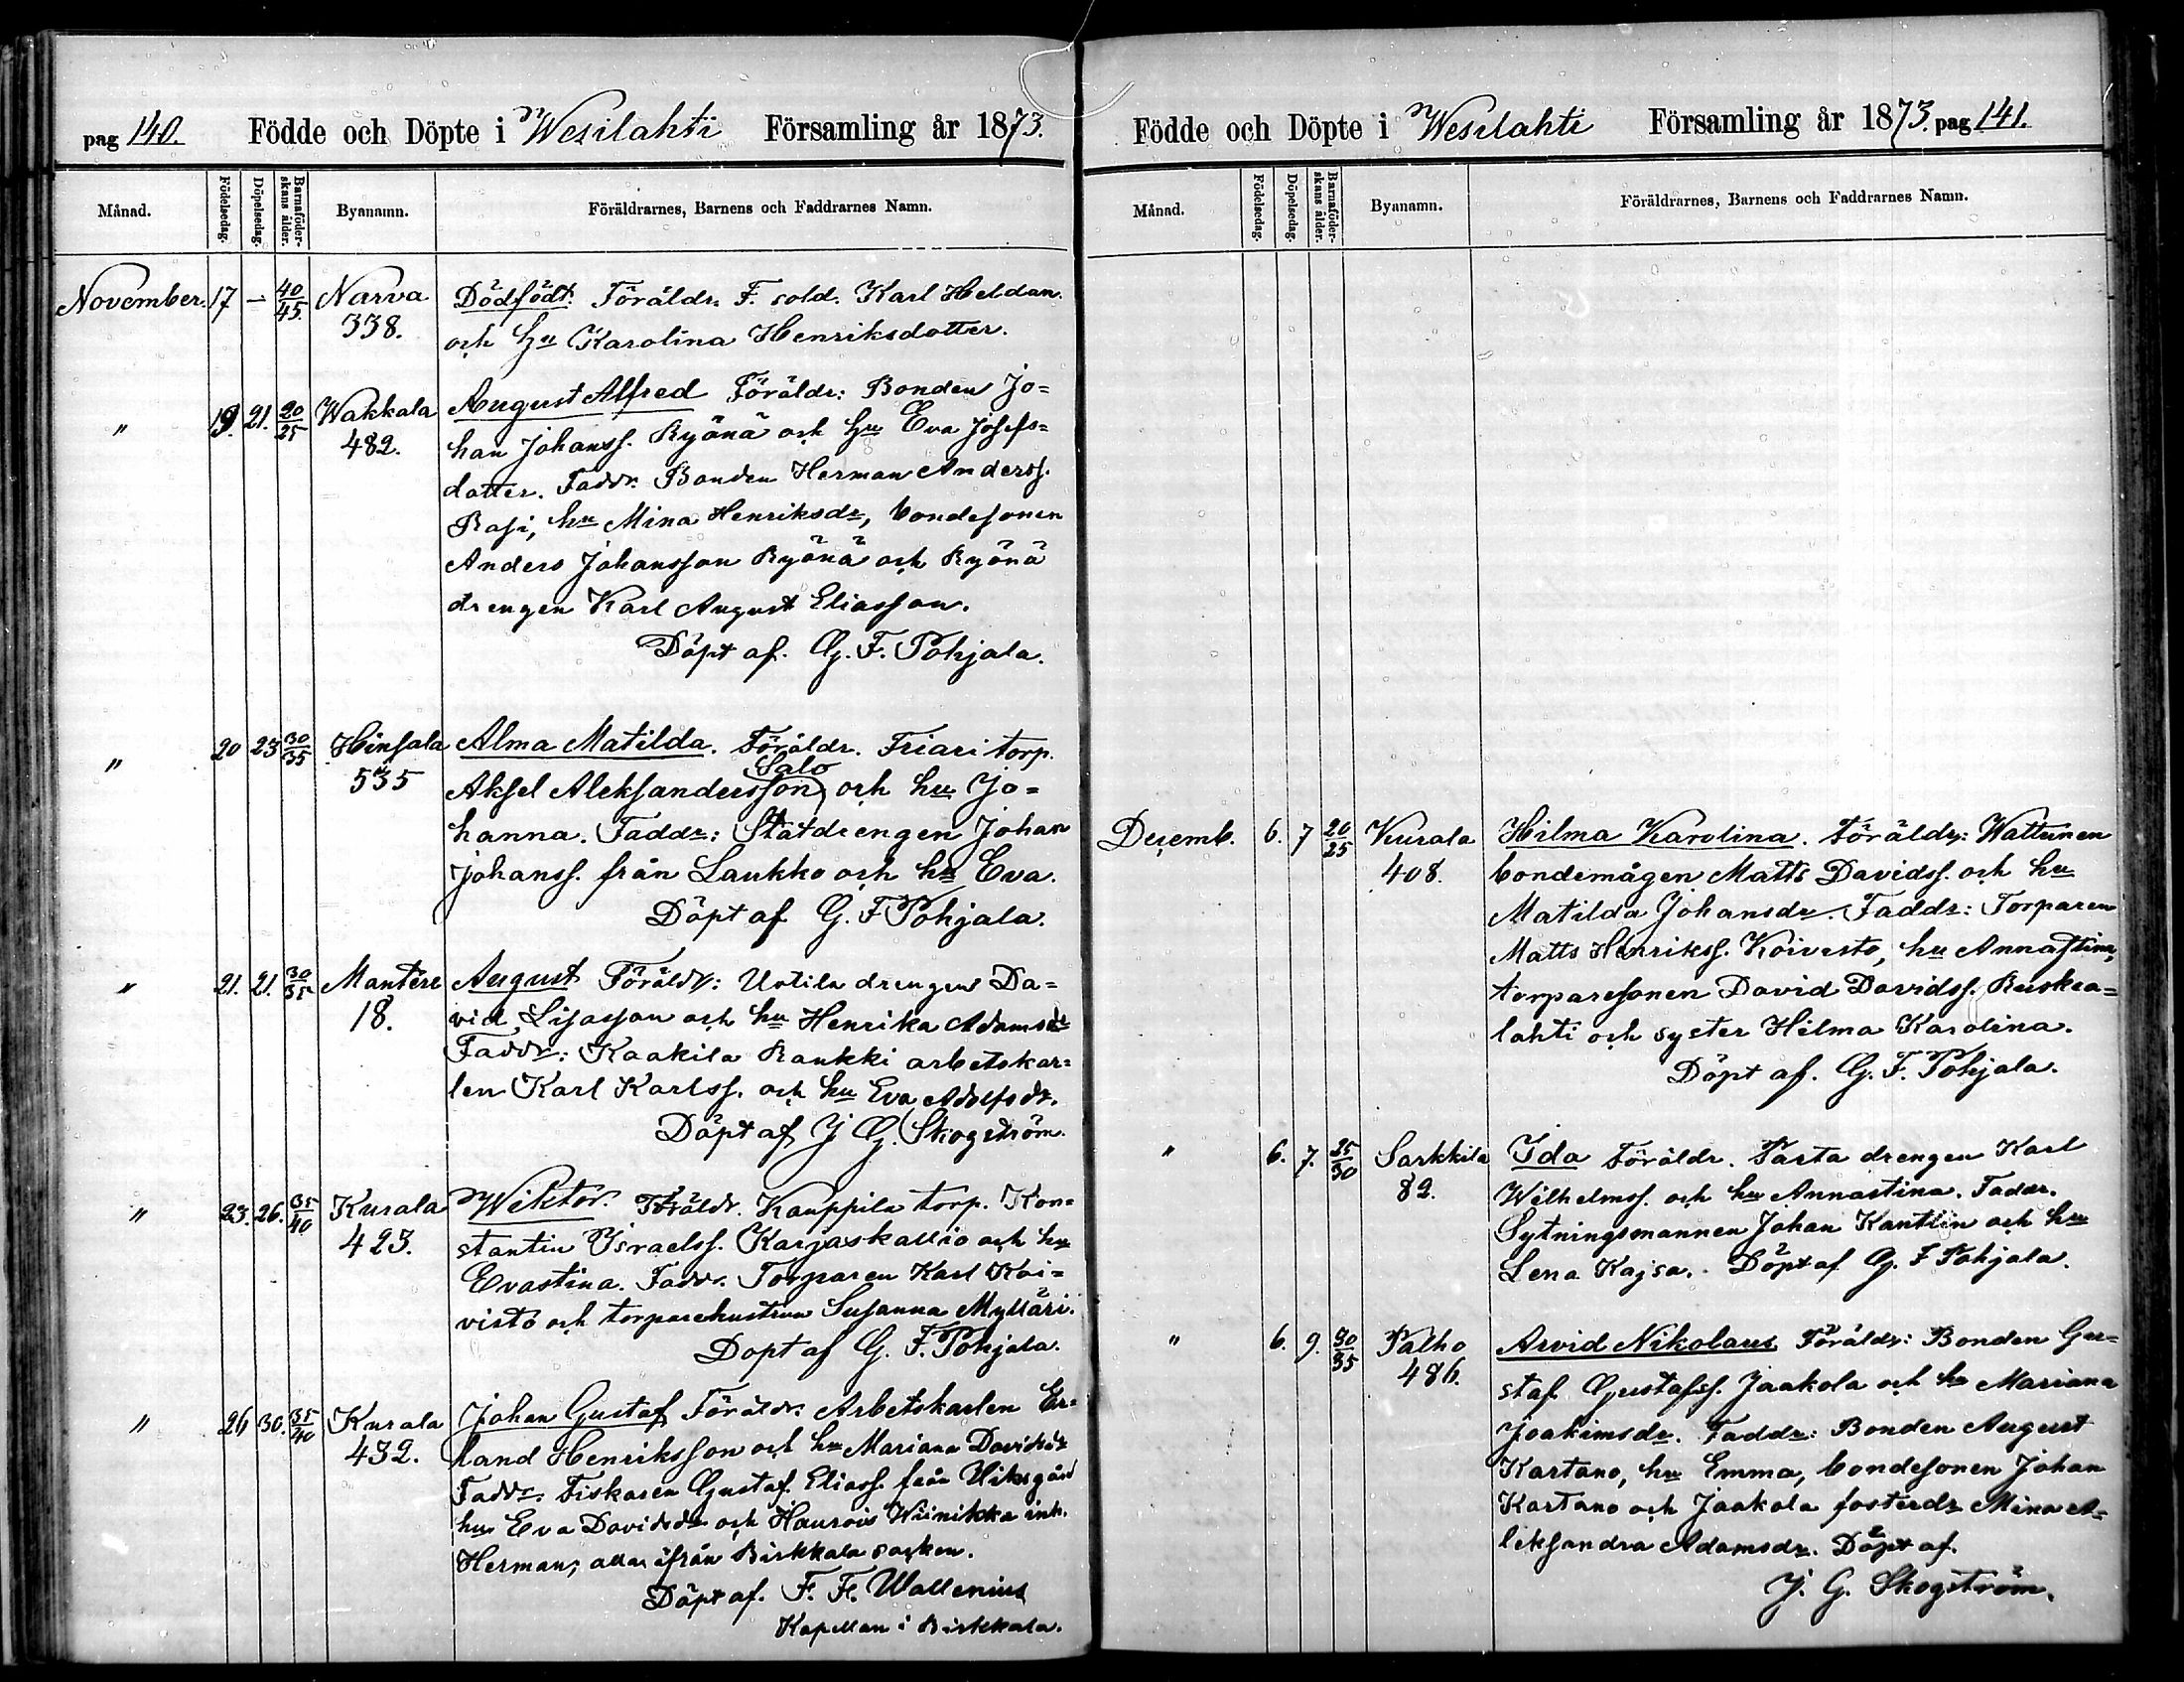 pag 140. Födde och Döpte i Wesilahti Församling år 1873.
Månad. Födelsedag. Döpelsedag. Barnaföderskans ålder. Byanamn. Föräldrarnes, Barnens och Faddrarnes Namn.
November. 17 — 40/45. Narva 338. Dödfödt. Föräldr. F. sold. Karl Heldan.
och hu Karolina Henriksdotter.
" 19. 21. 20/25 Wakkala 482. August Alfred Föräldr: Bonden Jo=
han Johanss. Ryönä och hu Eva Josefs=
dotter. Faddr. Bonden Herman Anderss.
Rasi, hu Mina Henriksdr, bondesonen
Anders Johansson Ryönä och Ryönä
drengen Karl August Eliasson.
Döpt af. G. F. Pohjala.
" 20 23 30/35 Hinsala 535 Alma Matilda. Föräldr. Friari torp.
Salo
Aksel Aleksandersson och hu Jo=
hanna. Faddr: Statdrengen Johan
Johanss. från Laukko och hu Eva.
Döpt af G. F Pohjala.
" 21. 21. 30/35 Mantere 18. August Föräldr: Uotila drengen Da=
vid Lisasson och hu Henrika Adamsdr
Faddr: Kaakila Raukki arbetskar=
len Karl Karlss. och hu Eva Adolfsdr.
Döpt af J G. Skogström.
" 23. 26. 35/40 Kurala 423. Wiktor. Föräldr. Kauppila torp. Kon=
stantin Israelss. Karjaskallio och hu
Evastina. Faddr. Torparen Karl Koi=
visto och torparehustrun Susanna Mylläri.
Dopt af G. F. Pohjala.
" 26 30. 35/40 Kurala 432. Johan Gustaf Föräldr. Arbetskarlen Er=
land Henriksson och hu Mariana Davidsdr
Faddr. Fiskaren Gustaf Eliass. från
hu Eva Davidsdr och Wiinikka inh.
Herman, alla ifrån Birkkala socken.
Döpt af. F. F. Wallenius
Kapellan i Birkkala.
Födde och Döpte i Wesilahti Församling år 1873. pag 141.
Månad. Födelsedag. Döpelsedag. Barnaföderskans ålder. Byanamn. Föräldrarnes, Barnens och Faddrarnes Namn.
Decemb. 6. 7 20/25 Kurala 408. Hilma Karolina. Föräldr: Wattunen
bondemågen Matts Davidss. och hu
Matilda Johansdr. Faddr: Torparen
Matts Henrikss. Koivisto, hu Annastina,
torparesonen David Davidss. Ruskea=
lahti och syster Hilma Karolina.
Döpt af. G. F. Pohjala.
" 6. 7. 25/30 Sarkkila 82. Ida Föräldr. Parta drengen Karl
Wilhelmss. och hu Annastina. Faddr.
Sytningsmannen Johan Kantlin och hu
Lena Kajsa. Döpt af G. F Pohjala.
" 6. 9. 30/35 Palho 486. Arvid Nikolaus Föräldr: Bonden Gu=
staf Gustafss. Jaakola och hu Mariana
Joakimsdr. Faddr: Bonden August
Kartano, hu Emma, bondesonen Johan
Kartano och Jaakola fosterdr Mina A=
leksandra Adamsdr. Döpt af.
J. G. Skogström.